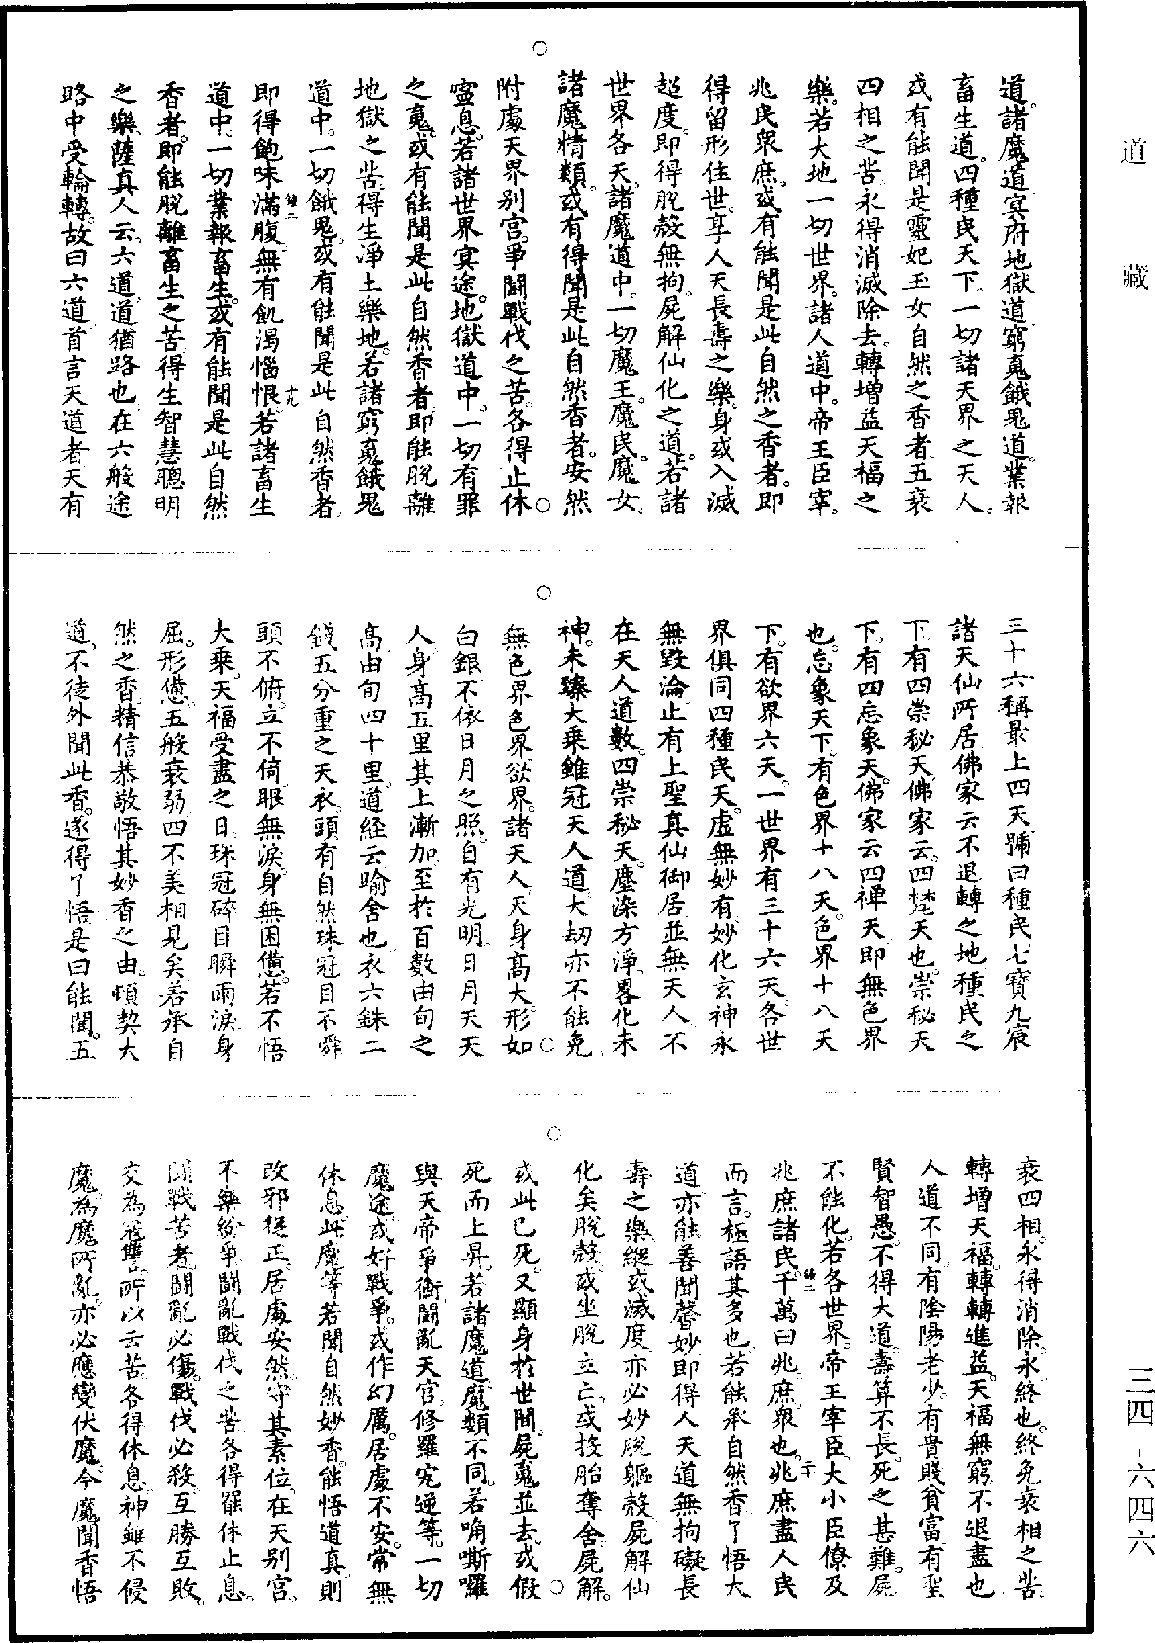 道諸魔道冥府地獄道窮䰟餓鬼道業報
畜生道四種民天下一切諸天界之天人
或有能聞是靈妃玉女自然之香者五衰
四相之苦永得消滅除去轉增益天福之
樂若大地一切世界諸人道中帝王臣宰
兆民衆庶或有能聞是此自然之香者即
得留形住世享人天長壽之樂身或入滅
超度即得脫殼無拘屍解仙化之道若諸
世界各天諸魔道中一切魔王魔民魔女
諸魔精類或有得聞是此自然香者安然
附處天界別宫爭鬪戰伐之苦各得止休
寧息若諸世界冥途地獄道中一切有罪
之䰟或有能聞是此自然香者即能脫離
地獄之苦得生淨土樂地若諸窮䰟餓鬼
道中一切餓鬼或有能聞是此自然香者
即得飽味滿腹無有飢渴惱恨若諸畜生
道中一切業報畜生或有能聞是此自然
香者即能脫離畜生之苦得生智慧聰明
之樂薩真人云六道道猶路也在六般途
路中受輪轉故曰六道首言天道者天有
三十六稱最上四天號曰種民七寶九宸
諸天仙所居佛家云不退轉之地種民之
下有四崇秘天佛家云四梵天也崇秘天
下有四忘象天佛家云四禪天即無色界
也忘象天下有色界十八天色界十八天
下有欲界六天一世界有三十六天各世
界俱同四種民天虛無妙有妙化玄神永
無毀淪止有上聖真仙御居並無天人不
在天人道數四崇秘天塵染方淨畧化未
神未臻大乘雖冠天人道大劫亦不能免
無色界色界欲界諸天人天身高大形如
白銀不依日月之照自有光明日月天天
人身高五里其上漸加至於百數由旬之
高由旬四十里道經云喻舍也衣六銖二
錢五分重之天衣頭有自然珠冠目不瞬
頭不俯立不倚眼無淚身無困憊若不悟
大乘天福受盡之日珠冠碎目瞬雨淚身
屈形憊五般衰弱四不美相見矣若承自
然之香精信恭敬悟其妙香之由頓契大
道不徒外聞此香遂得了悟是曰能聞五
衰四相永得消除永終也終免衰相之苦
轉增天福轉轉進益天福無窮不退盡也
人道不同有陰陽老少有貴賤貧富有聖
賢智愚不得大道壽算不長死之甚難屍
不能化若各世界帝王宰臣大小臣僚及
兆庶諸民千萬曰兆庶衆也兆庶盡人民
而言極語其多也若能承自然香了悟大
道亦能善聞馨妙即得人天道無拘礙長
壽之樂縱或滅度亦必妙脫軀殼屍解仙
化矣脫殼或坐脫立亡或投胎奪舍屍解
或此已死又顯身於世間屍䰟並去或假
死而上昇若諸魔道魔類不同若喃嘶囉
與天帝爭衡鬪亂天宫修羅寃逆等一切
魔途或好戰爭或作幻厲居處不安常無
休息此魔等若聞自然妙香能悟道真則
改邪從正居處安然守其素位在天別宫
不樂紛爭鬪亂戰伐之苦各得罷休止息
鬪戰苦者鬪亂必傷戰伐必殺互勝互敗
交為寇讐所以云苦各得休息神雖不侵
魔為魔所亂亦必應變伏魔今魔聞香悟
道藏
三四-六四六